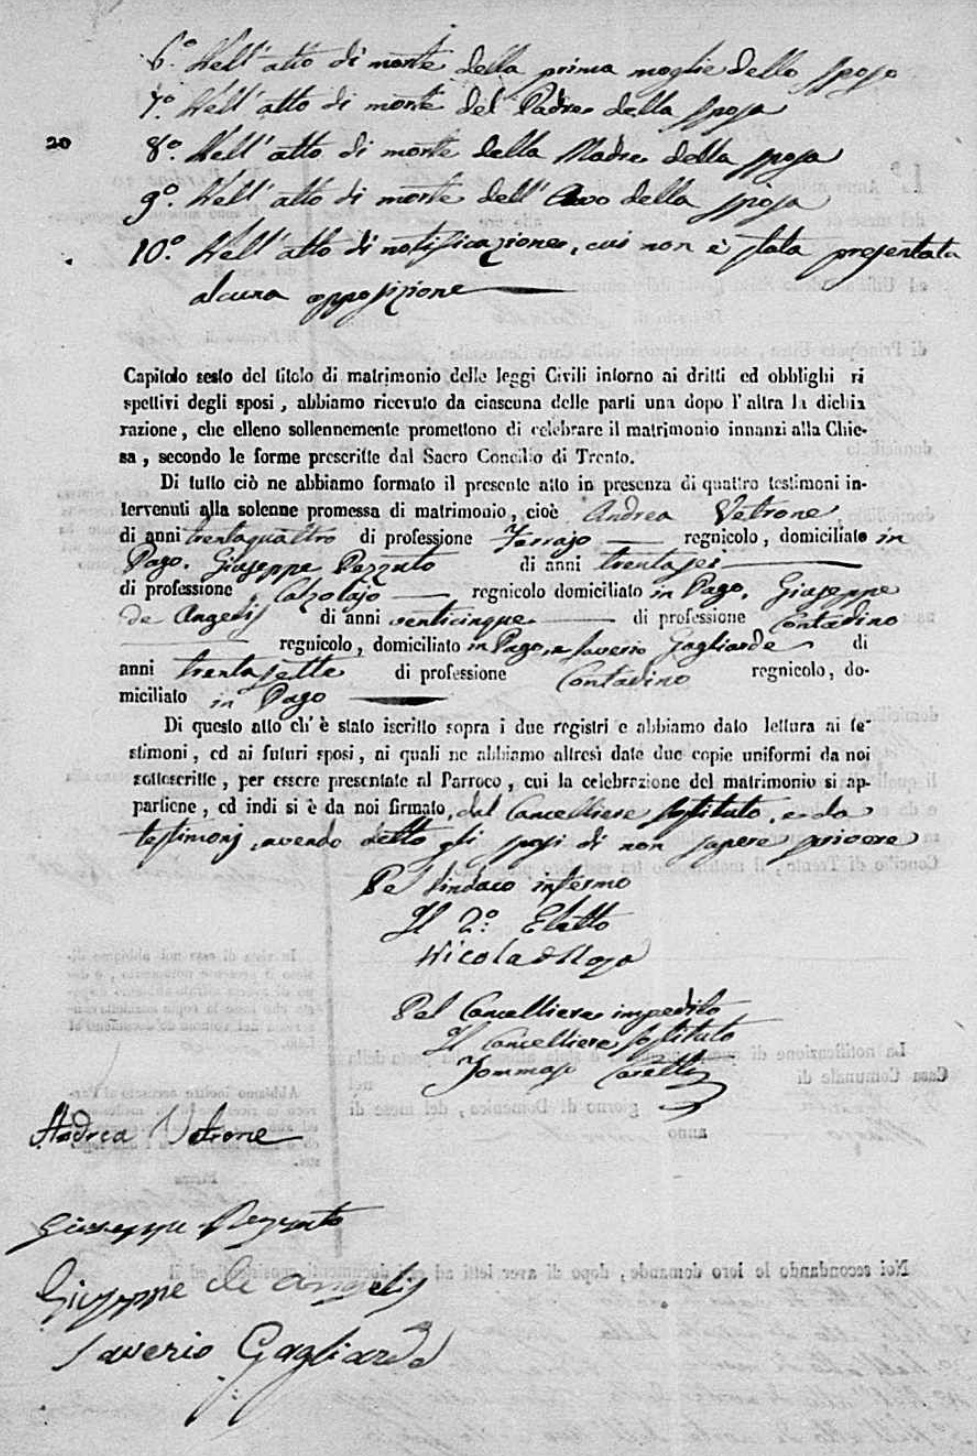 6.° Nell'atto di morte della prima moglie dello sposo
7.° Nell'atto di morte del Padre della sposa
20
8.° Nell'atto di morte della Madre della sposa
9.° Nell'atto di morte dell'Avo della sposa
10.° Nell'atto di notificazione, cui non è stata presentata
alcuna opposizione
Capitolo sesto del titolo di matrimonio delle leggi Civili intorno ai dritti ed obblighi ri
spettivi degli sposi, abbiamo ricevuto da ciascuna delle parti una dopo l'altra la dichia
razione, che elleno sollennemente promettono di celebrare il matrimonio innanzi alla Chie-
sa, secondo le forme prescritte dal Sacro Concilio di Trento.
Di tutto ciò ne abbiamo formato il presente atto in presenza di quattro testimoni in-
tervenuti alla solenne promessa di matrimonio, cioè Andrea Vetrone
di anni trentaquattro di professione Ferrajo regnicolo, domiciliato in
Pago. Giuseppe Pezzuto di anni trentasei
di professione Calzolajo regnicolo domiciliato in Pago. Giuseppe
de Angelis di anni venticinque di professione Contadino
regnicolo, domiciliato in Pago, e Saverio Gagliarde di
anni trentasette di professione Contadino regnicolo, do-
miciliato in Pago
Di questo atto ch'è stato iscritto sopra i due registri e abbiamo dato lettura ai te-
stimoni, ed ai futuri sposi, ai quali ne abbiamo altresì date due copie uniformi da noi
sottoscritte, per essere presentate al Parroco, cui la celebrazione del matrimonio si ap-
partiene, ed indi si è da noi firmato, dal Cancelliere sostituto, e da
testimonj, avendo detto gli sposi di non sapere scrivere
Pel Sindaco infermo
Il 2.° Eletto
Nicola
Pel Cancelliere impedito
Il Cancelliere sostituto
Tommaso
Andrea Vetrone
Giuseppe Pezzuto
Giuseppe de Angelis
Saverio Gagliarde